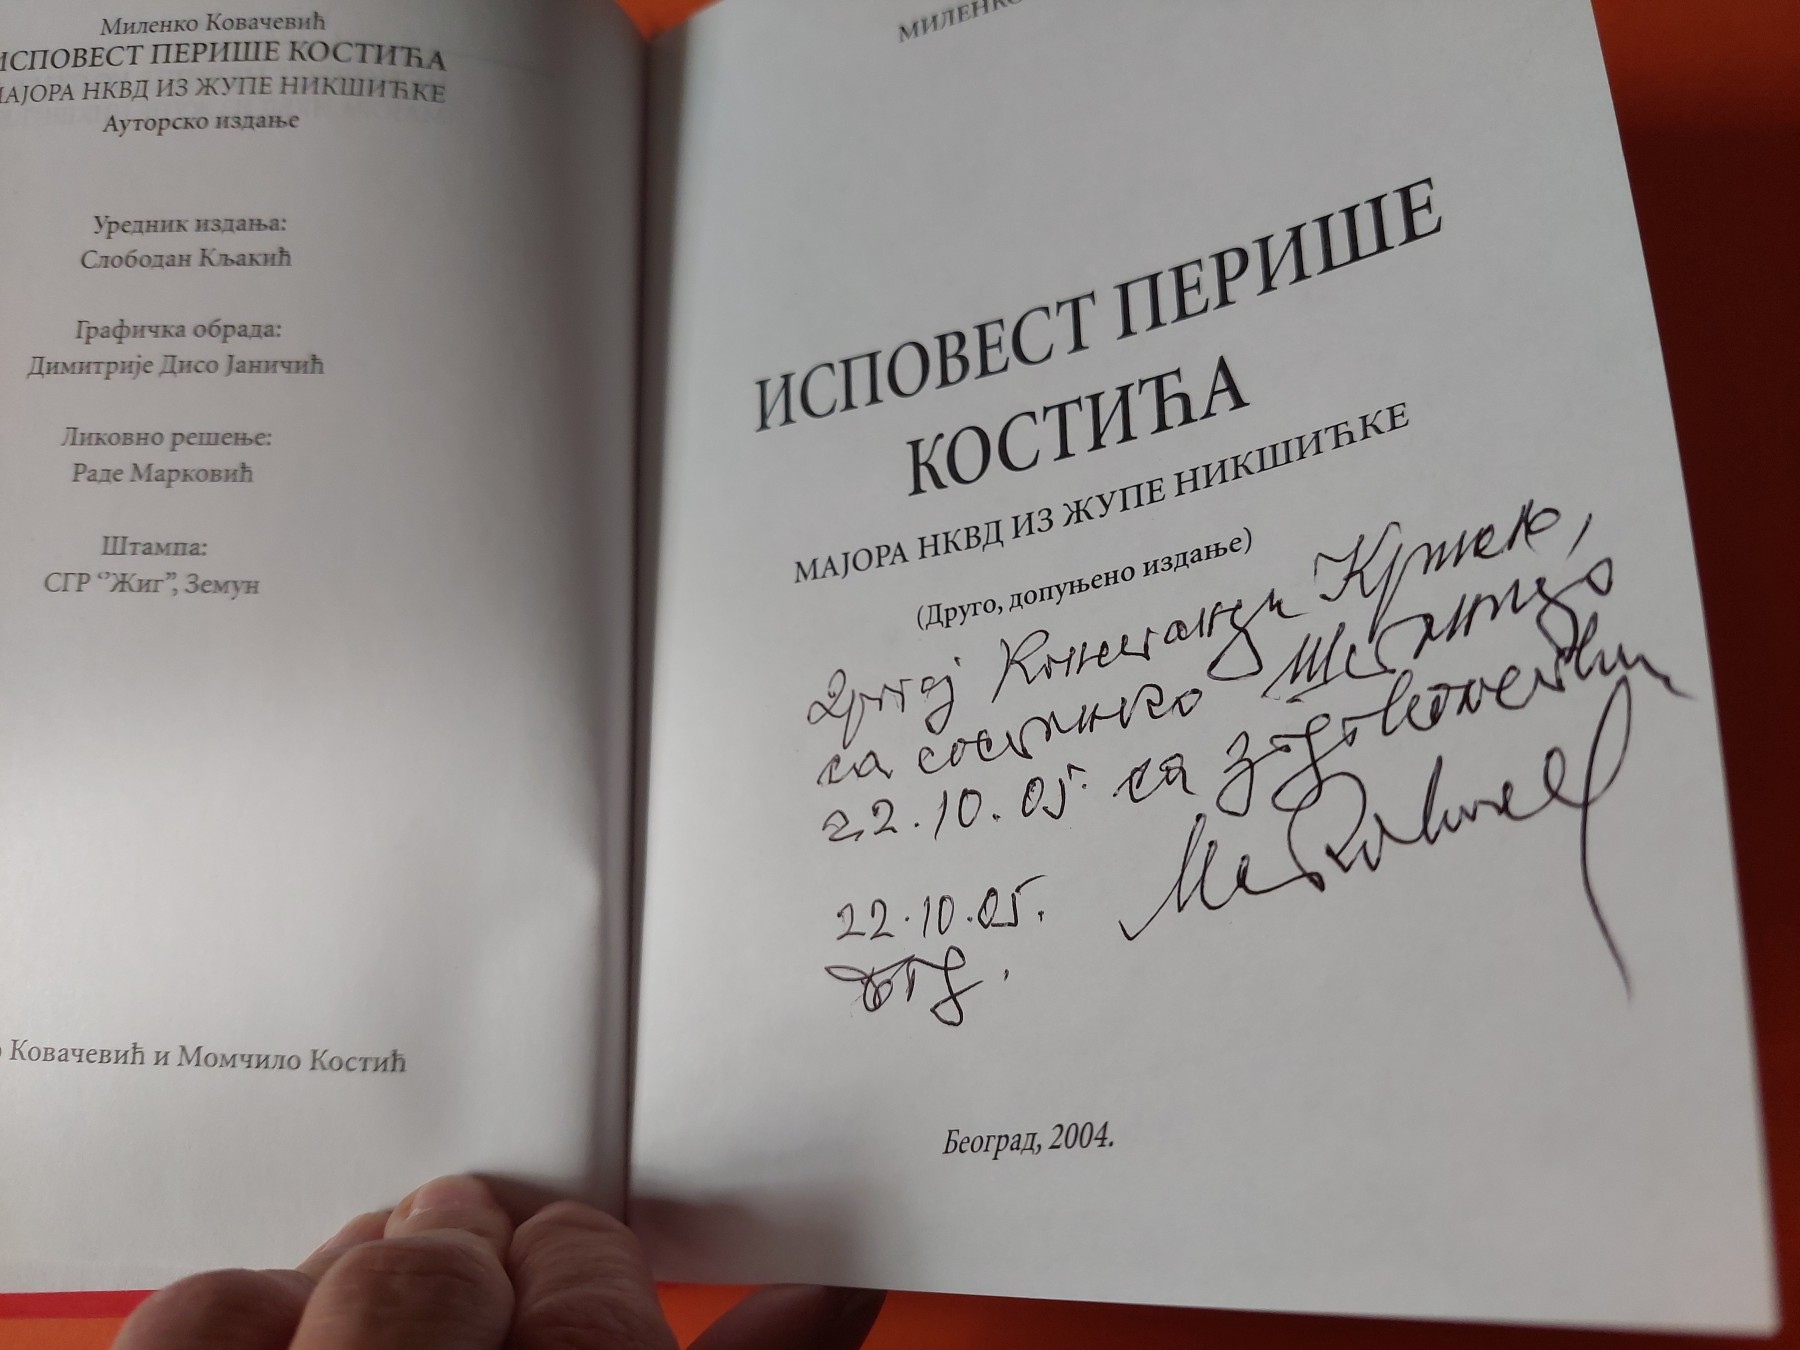 Миленко Ковачевић
ИСПОВЕСТ ПЕРИШЕ КОСТИЋА
МАЈОРА НКВД ИЗ ЖУПЕ НИКШИЋКЕ
Ауторско издање
Уредник издања:
Слободан Кљакић
Графичка обрада:
Димитрије Дисо Јаничић
Ликовно решење:
Раде Марковић
Штампа:
СГР "Жиг", Земун
Ковачевић и Момчило Костић
МИЛЕНКО
ИСПОВЕСТ ПЕРИШЕ
КОСТИЋА
МАЈОРА НКВД ИЗ ЖУПЕ НИКШИЋКЕ
(Друго, допуњено издање)
са
22.10.05. са задовољством
22.10.05.
Београд, 2004.